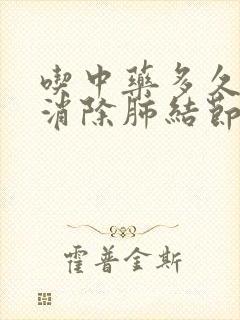 喫中藥多久
消除肺結節
霍普金斯